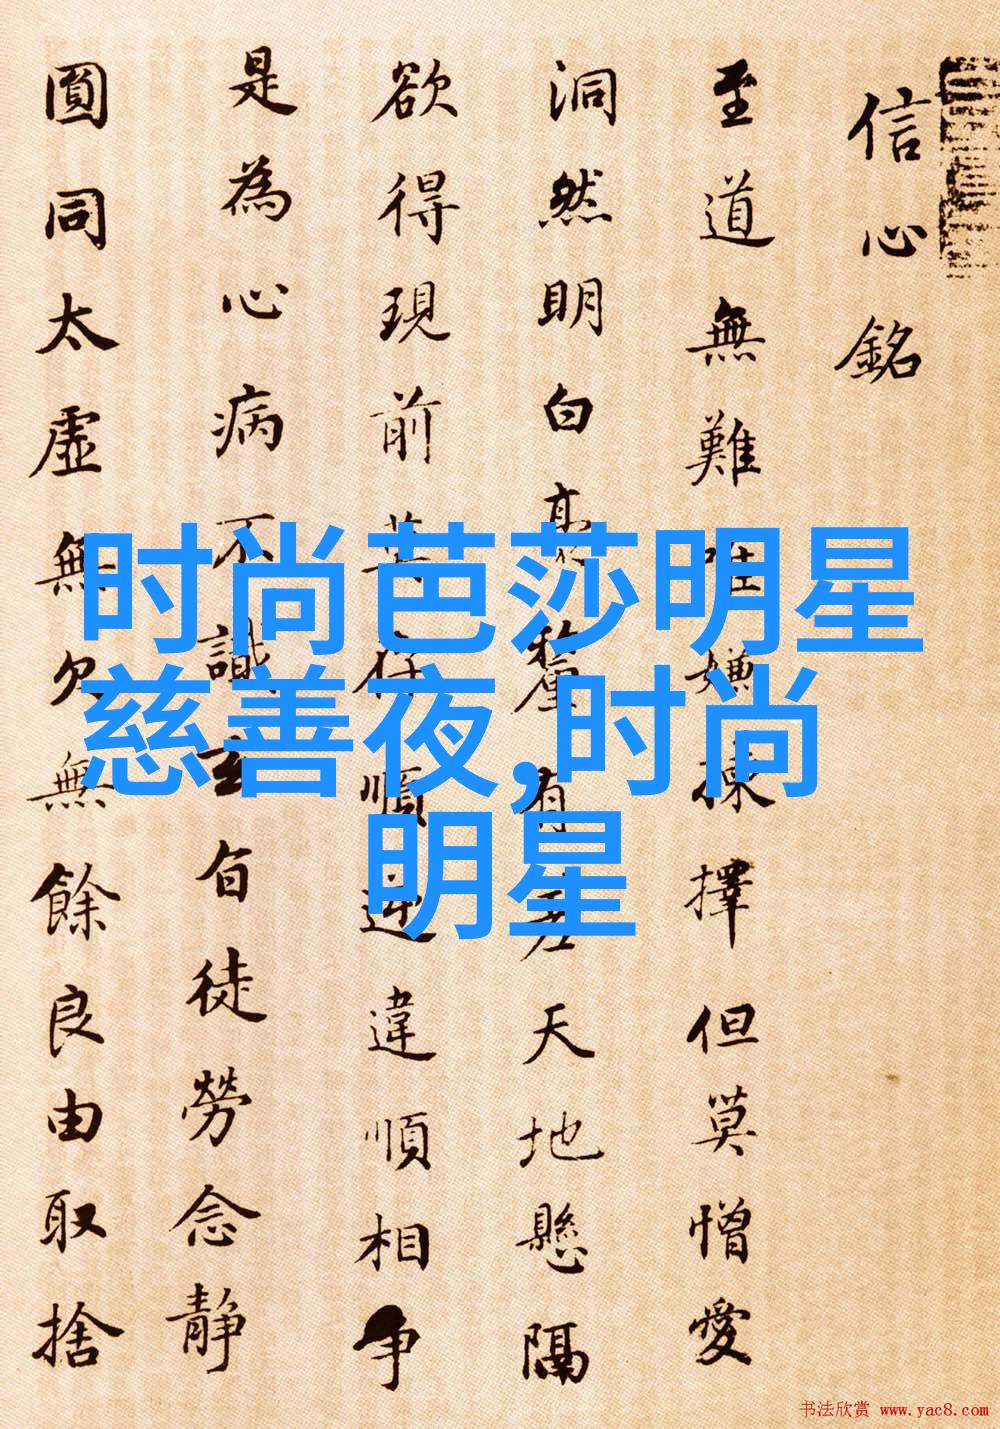 信心銘
至道無難唯嫌揀擇但莫憎愛
洞然明白毫釐有差天地懸隔
欲得現前莫存順逆違順相爭
是為心病不識玄旨徒勞念靜
圓同太虛無欠無餘良由取捨
时尚芭莎明星
慈善夜,时尚
明星
书法欣赏 www.yac8.com